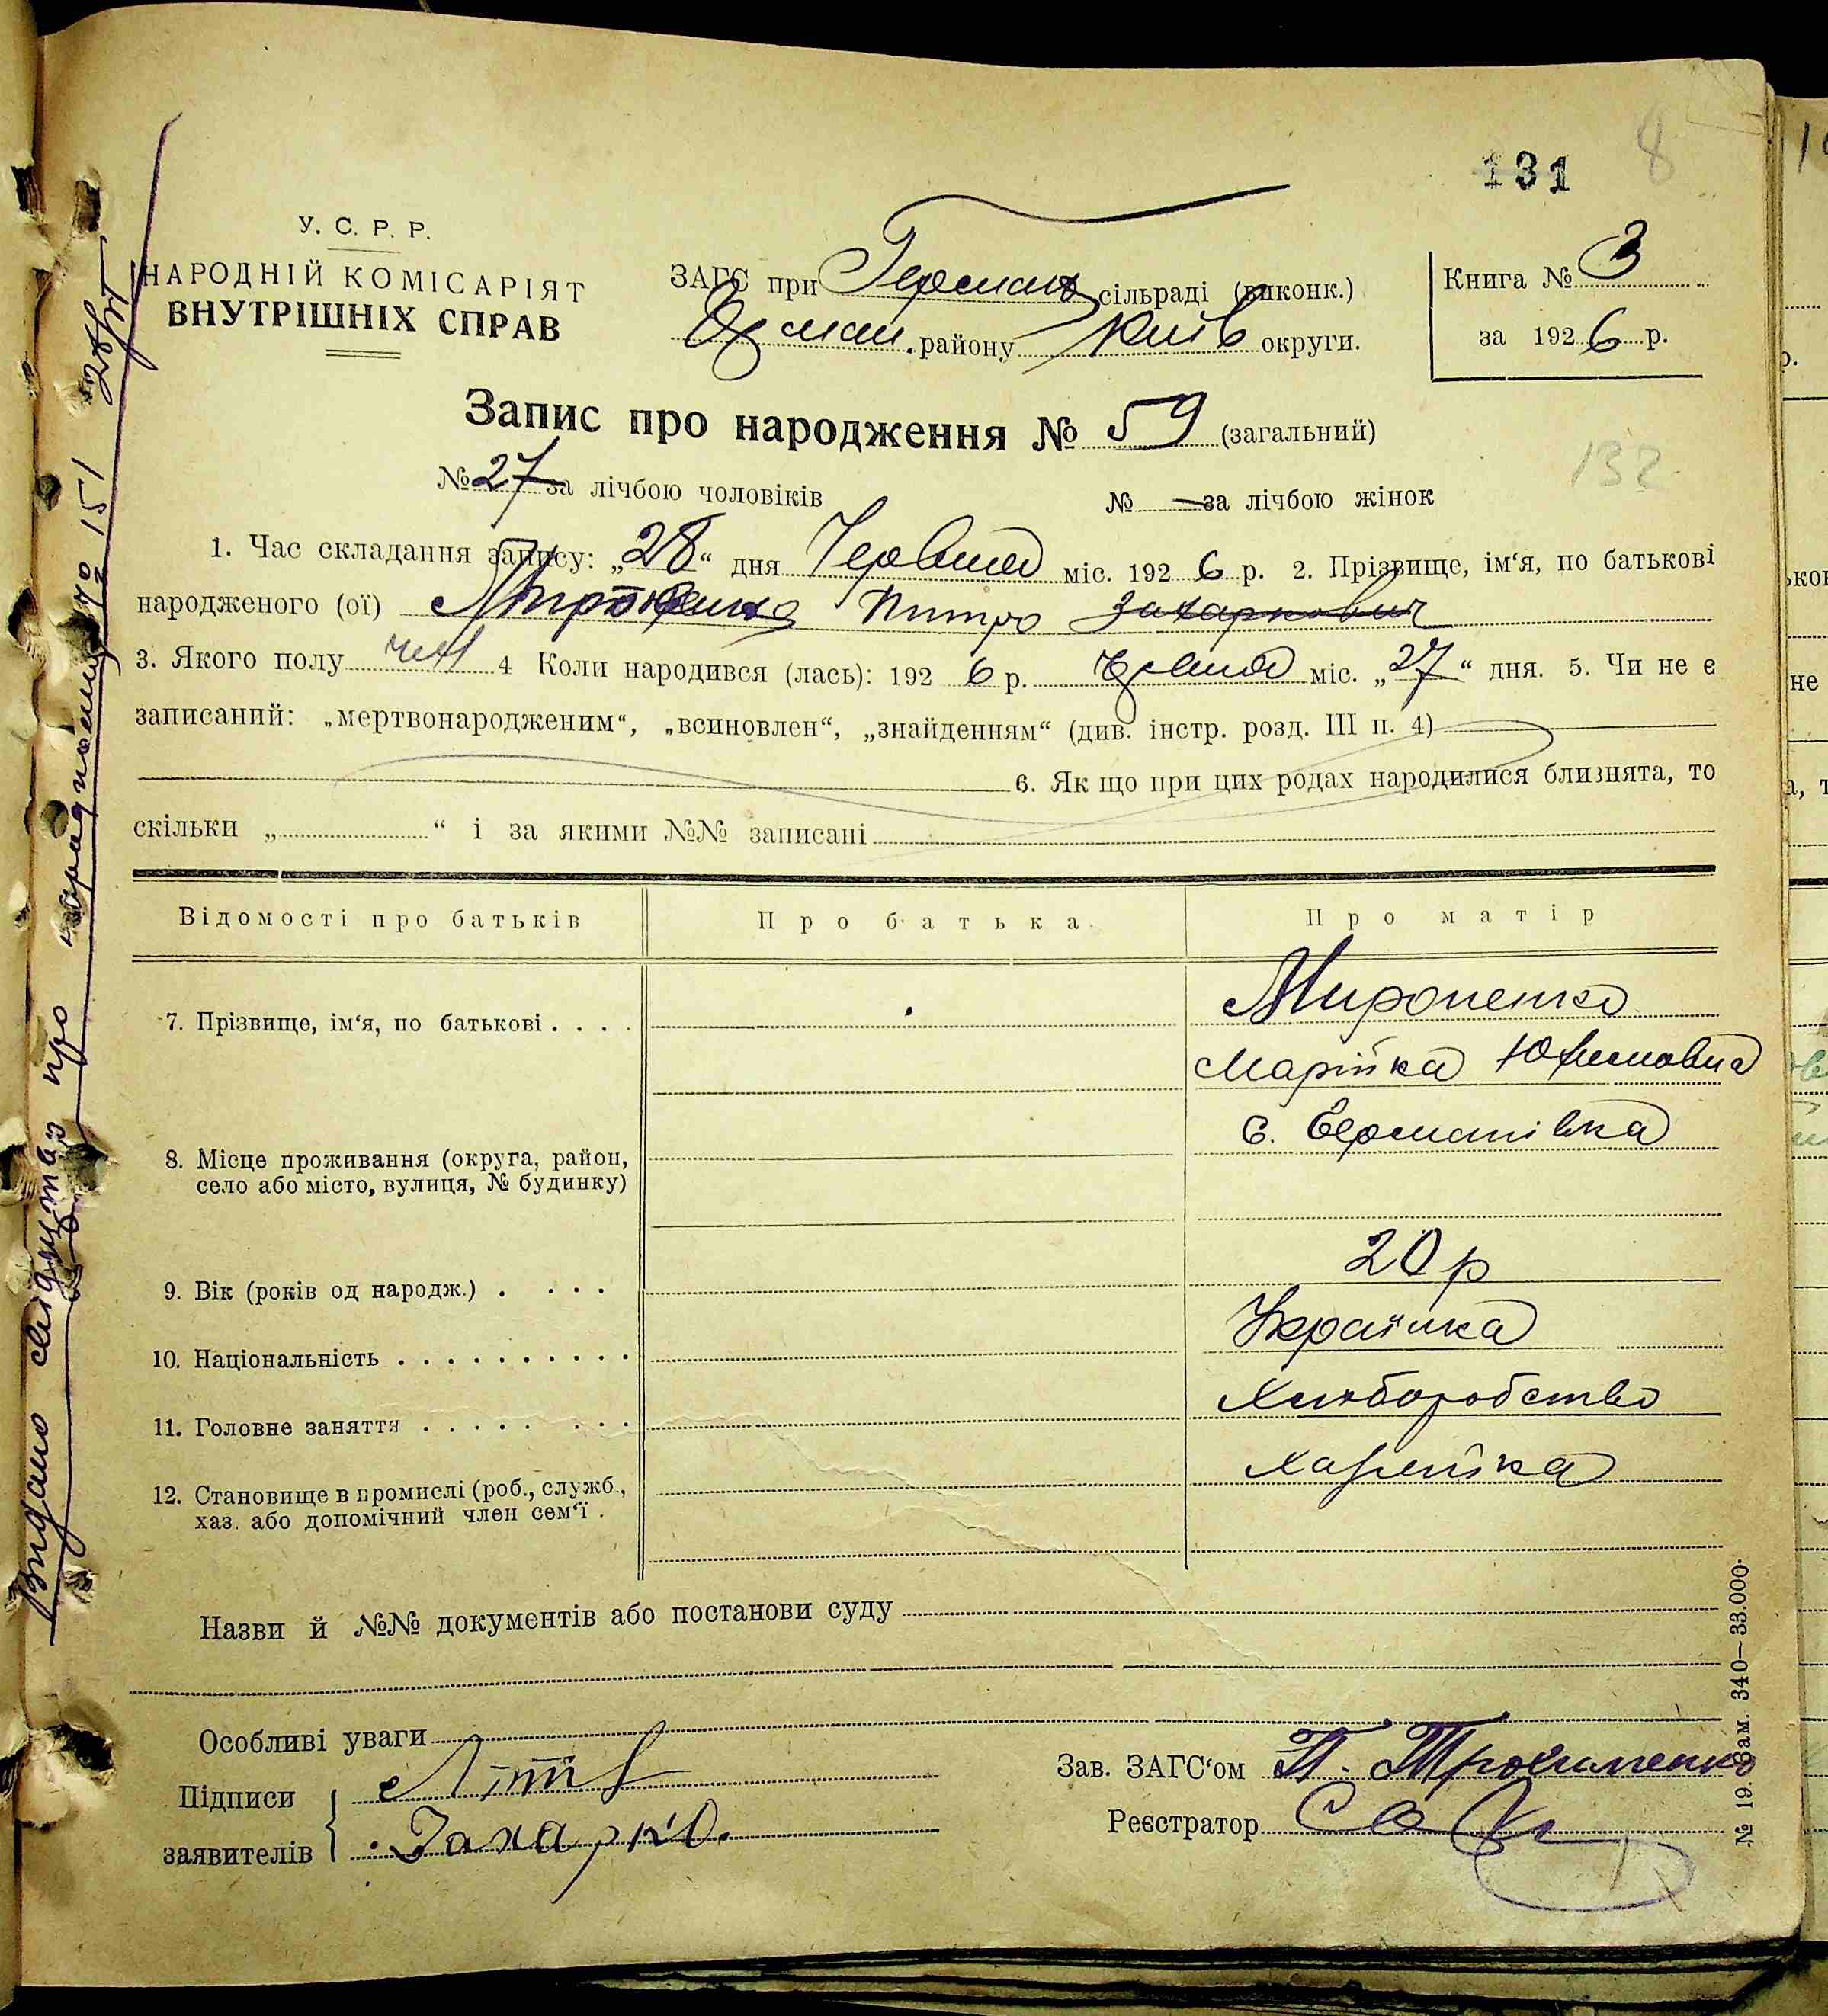 131 8
У. С. Р. Р.
НАРОДНІЙ КОМІСАРІЯТ
ВНУТРІШНІХ СПРАВ
ЗАГС при Герман сільраді (виконк.)
району Київ округи.
Книга № 3
за 1926 р.
Запис про народження № 59 (загальний)
132
№ 27 за лічбою чоловіків № — за лічбою жінок
1. Час складання запису: „28“ дня Червня міс. 1926 р. 2. Прізвище, ім‘я, по батькові
народженого (ої) Петро Захаркович
3. Якого полу чол 4 Коли народився (лась): 1926 р. Червня міс. „27“ дня. 5. Чи не є
записаний: „мертвонародженим“, „всиновлен“, „знайденням“ (див. інстр. розд. III п. 4)
6. Як що при цих родах народилися близнята, то
скільки „ “ і за якими №№ записані
Відомості про батьків Про батька Про матір
7. Прізвище, ім‘я, по батькові . . . . Мироненко
Марійка Юхимовна
8. Місце проживання (округа, район, село або місто, вулиця, № будинку) с. Германівка
9. Вік (років од народж.) . . . . 20 р
10. Національність . . . . . . . . . . Українка
11. Головне заняття . . . . . . . . Хліборобство
12. Становище в промислі (роб., служб., хаз. або допомічний член сем‘ї . Хазяйка
Назви й №№ документів або постанови суду
Особливі уваги
Підписи
заявителів Захарко.
Зав. ЗАГС‘ом П. Трохименко
Реєстратор
№ 19. Зам. 340—33.000.
Видано свідоцтво про народження